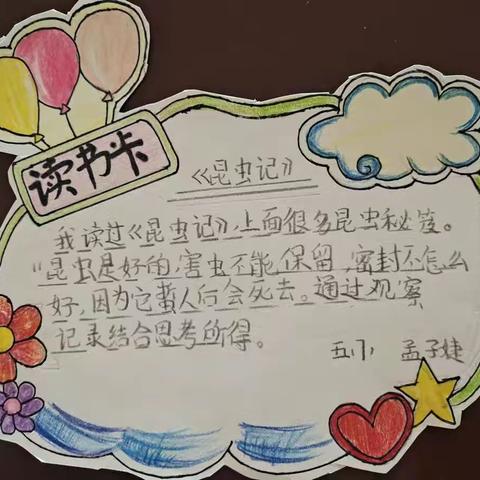 读书卡
《昆虫记》
我读过《昆虫记》,上面很多昆虫秘笈。
"昆虫是好的,害虫不能保留,密封不怎么
好,因为它蜇人后会死去。通过观察
记录结合思考所得。
五.1 孟子婕